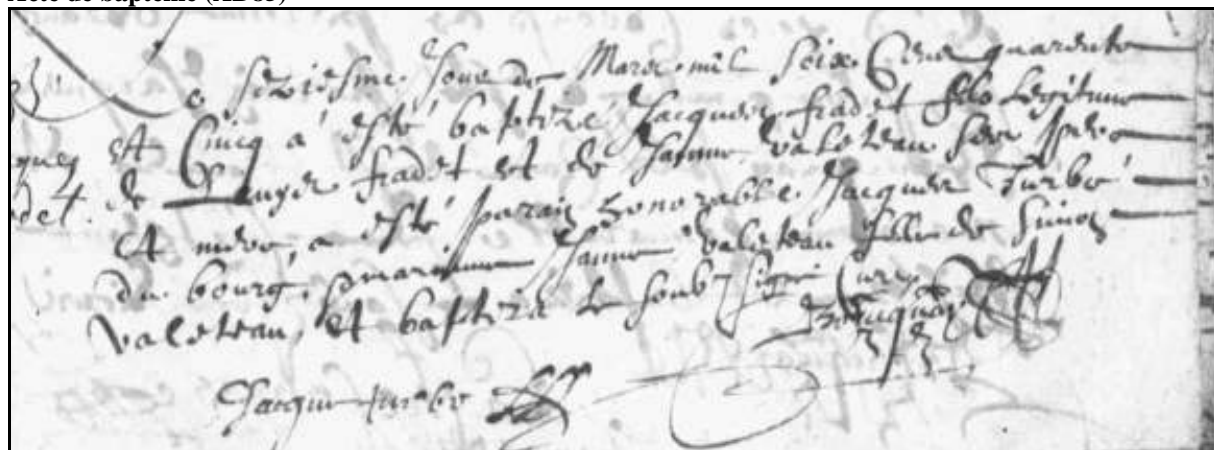 Acte de baptême (AD85)
e seziesme Jour de Mars mil Seix Cens quarente
et Cinq a esté baptizé Jacques fradet filz Legitime
de fradet et de Janne valeteau ses pere
et mere, a esté parain honorable Jacques Turbé
du bourg, maraine Janne valeteau fille de Simon
valeteau, et baptizé le soubz signé Curé
Jacques turbe